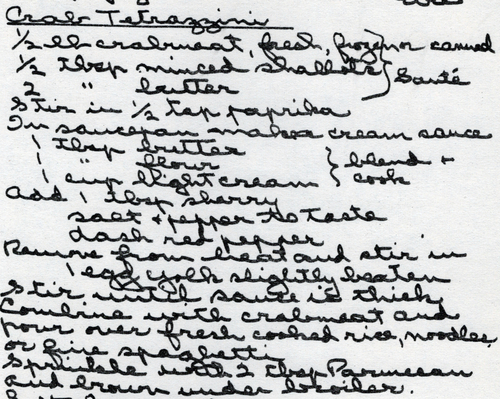 Crab Tetrazzini
1/2 lb crabmeat, fresh, frozen or canned
1/2 tbsp minced shallots } Sauté
2 " butter
Stir in 1/2 tsp paprika
In saucepan make cream sauce
1 tbsp butter
1 " flour } blend +
1 cup light cream } cook
Add 1 tbsp sherry
salt + pepper to taste
dash red pepper
Remove from heat and stir in
1 egg yolk slightly beaten
Stir until sauce is thick,
Combine with crabmeat and
pour over fresh cooked rice, noodles,
or fine spaghetti
Sprinkle with 2 tbsp Parmesan
and brown under broiler.